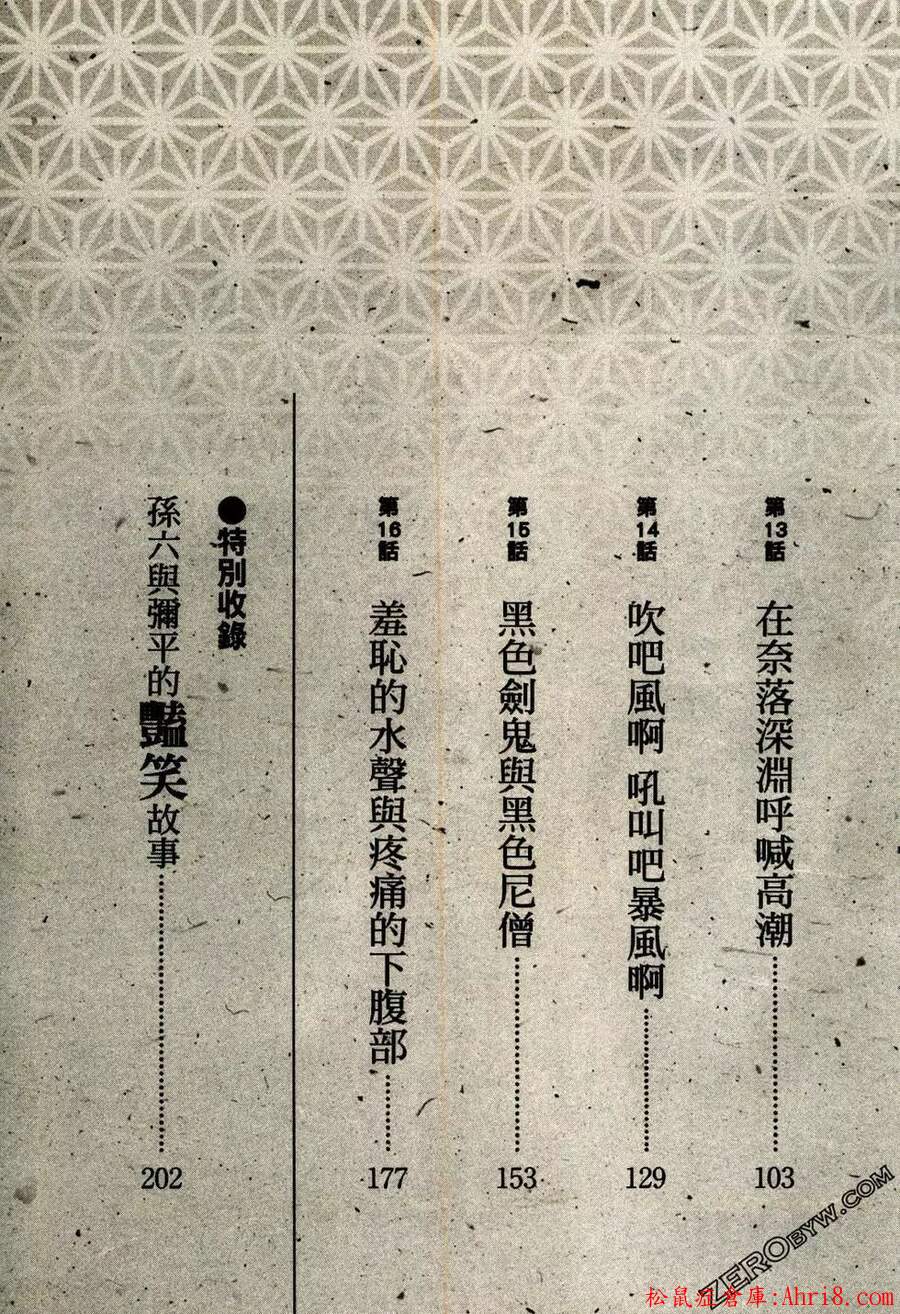 第13話 在奈落深淵呼喊高潮 103
第14話 吹吧風啊 吼叫吧暴風啊 129
第15話 黑色劍鬼與黑色尼僧 153
第16話 羞恥的水聲與疼痛的下腹部 177
●特別收錄
孫六與彌平的豔笑故事 202
ZEROBYW.COM
松鼠症倉庫:Ahri8.com